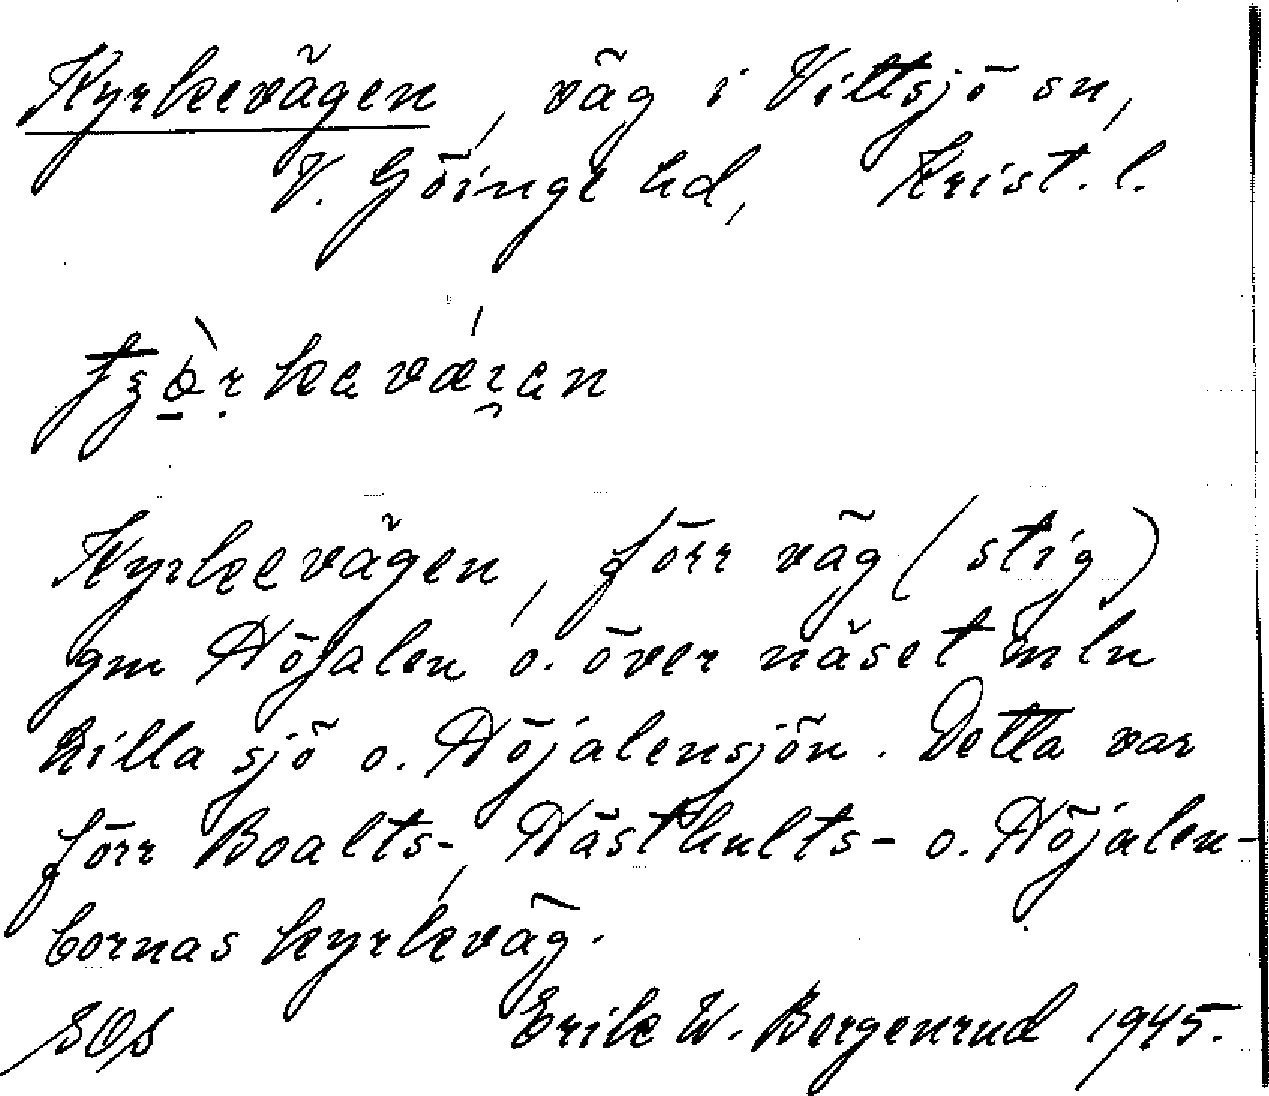 Kyrkevägen, väg i Vittsjö sn,
V. Göinge hd, Krist. l.
Kyrkevägen, förr väg (stig)
gm Höjalen o. över näset mln
Lilla sjö o. Höjalensjön. Detta var
förr Boalts-, Hästhults- o. Höjalen-
bornas kyrkväg.
Erik W. Bergenrud 1945.